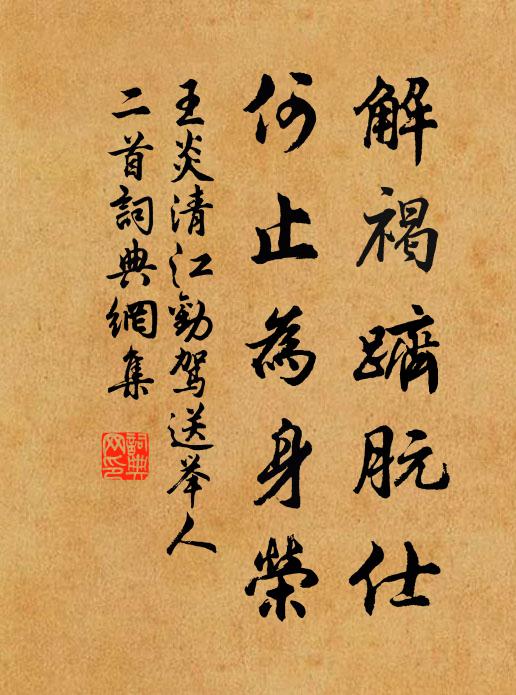 解褐躋朊仕
何止為身榮
王炎清江勸駕送举人
二首詞典網集
詞典網印